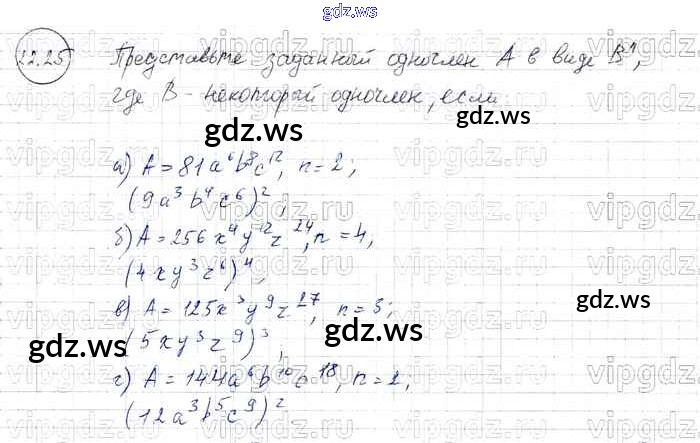 gdz.ws
22.25 Представьте заданный одночлен А в виде Bⁿ,
где B - некоторый одночлен, если
gdz.ws
gdz.ws
а) A = 81a⁶b⁸c¹², n = 2;
(9a³b⁴c⁶)²,
б) A = 256x⁴y¹²z²⁴, n = 4,
(4xy³z⁶)⁴,
gdz.ws
в) A = 125x³y⁹z²⁷, n = 3;
(5xy³z⁹)³,
gdz.ws
gdz.ws
г) A = 144a⁶b¹⁰c¹⁸, n = 2;
(12a³b⁵c⁹)²
gdz.ws